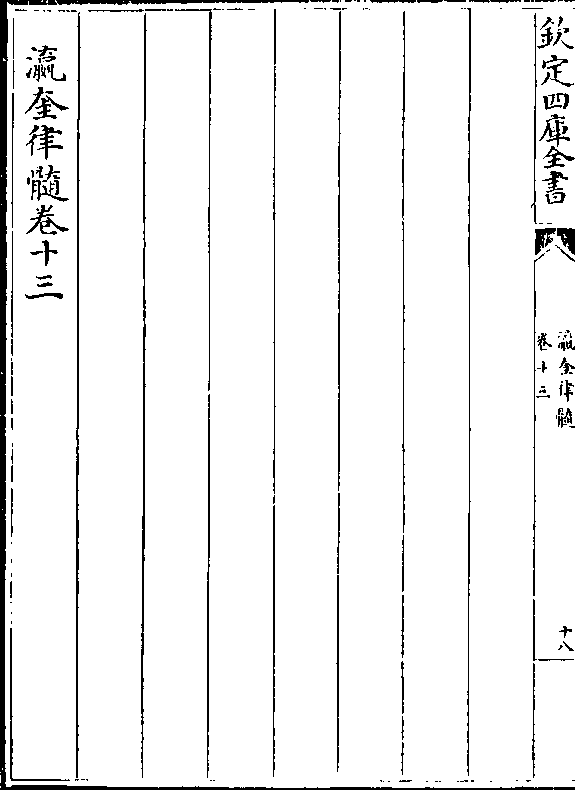 欽定四庫全書
瀛奎律髓
卷十三
十八
瀛奎律髓卷十三